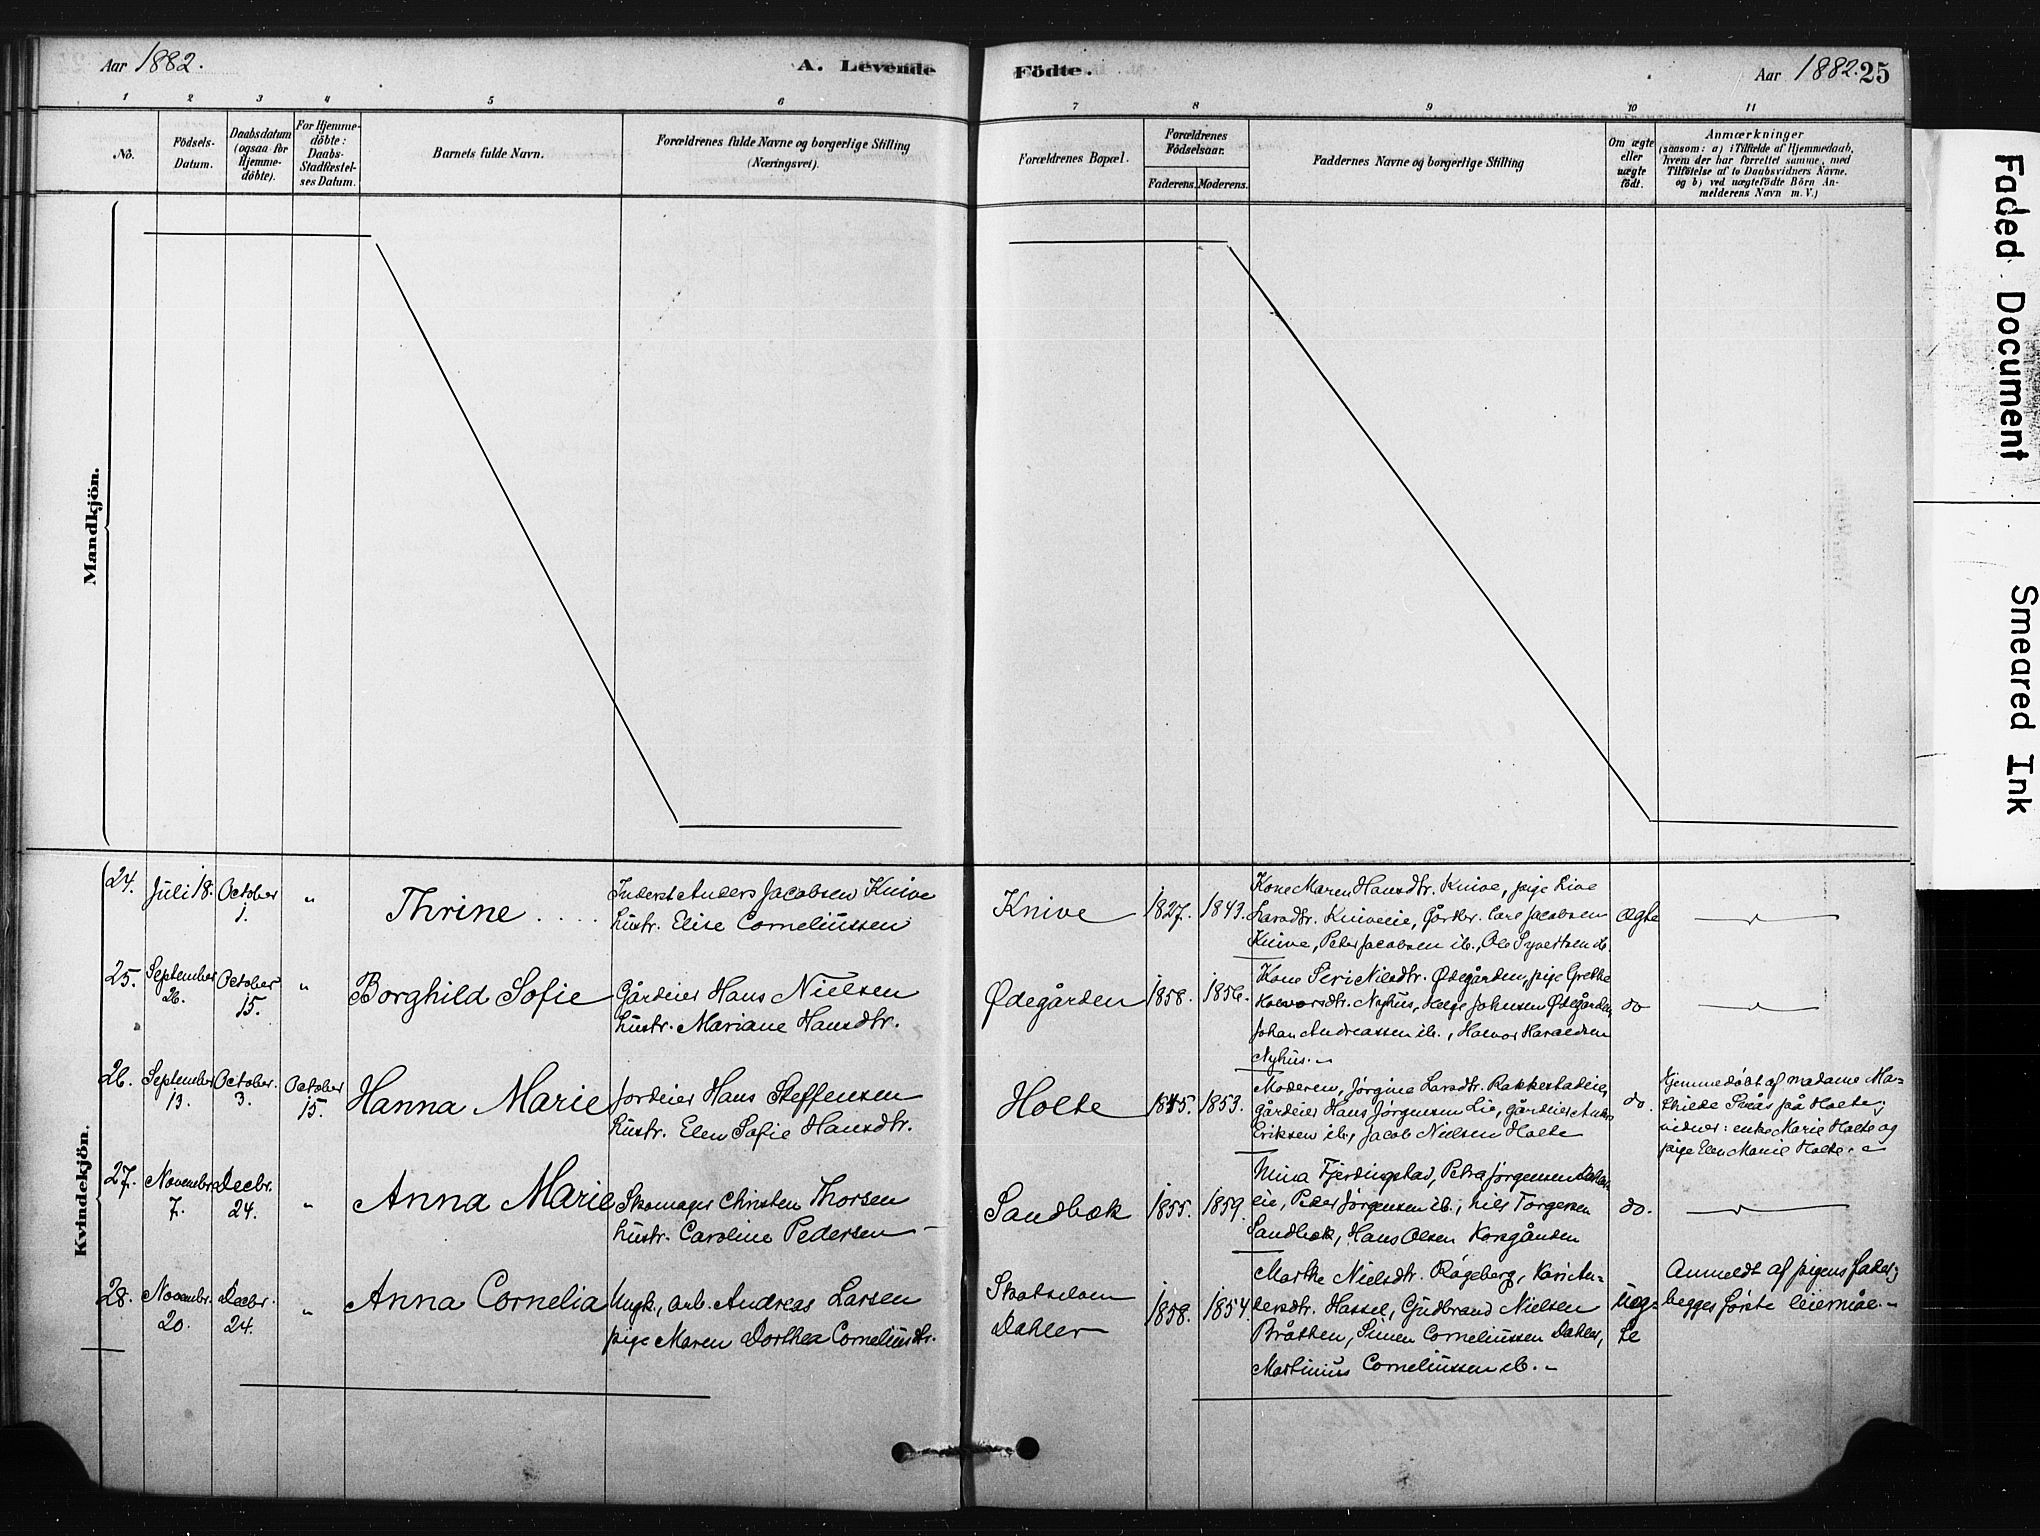 Aar 1882.
A. Levende
Födte.
Aar 1882. 25
1 2 3 4 5 6 7 8 9 10 11
No.
Födsels-
Datum.
Daabsdatum
(ogsaa for
Hjemme-
döbte).
For Hjemme-
döbte:
Daabs-
Stadfæstel-
ses Datum.
Barnets fulde Navn.
Forældrenes fulde Navne og borgerlige Stilling
(Næringsvei).
Forældrenes Bopæl.
Forældrenes
Födselsaar.
Faderens. Moderens.
Faddernes Navne og borgerlige Stilling
Om ægte
eller
uægte
födt.
Anmærkninger
(saasom: a) i Tilfælde af Hjemmedaab,
hvem der har forrettet samme, med
Tilföielse af to Daabsvidners Navne.
og b) ved uægtefödte Börn An-
melderens Navn m. V.)
Mandkjön.
Kvindekjön.
24.
Juli 18.
October
1.
"
Thrine
Inderst Anders Jacobsen Knive
hustr. Elise Corneliussen
Knive
1827. 1843.
Kone Maren Hansdtr. Knive, pige Live
Larsdtr. Kniveeie, Gårdbr. Carl Jacobsen
Knive, Peter Jacobsen ib., Ole Syvertsen ib.
Ægte
25.
September
26.
October
15.
"
Borghild Sofie
Gårdeier Hans Nielsen
hustr. Mariane Hansdtr.
Ødegården
1858. 1856.
Kone Siri Nilsdtr. Ødegården, pige Grethe
Halvorsdtr. Nyhus, Helge Johnsen Ødegården
Johan Andreassen ib., Halvor Haraldsen
Nyhus.
do
26.
September
13.
October.
3.
October
15.
Hanna Marie
Jordeier Hans Steffensen
hustr. Elen Sofie Hansdtr.
Holte
1845. 1853.
Moderen, Jørgine Larsdtr. Rakkestadeie,
gårdeier Hans Jørgensen Lie, gårdeier
Eriksen ib., Jacob Nielsen Holte
do.
Hjemmedøbt af madame Ma-
thilde Snås på Holte;
vidner: enke Marie Holte og
pige Elen Marie Holte.
27.
Novembr.
7.
Decbr.
24.
"
Anna Marie
Skomager Christen Thorsen
hustr. Caroline Pedersen
Sandbæk
1855. 1859.
Mina Fjerdingstad, Petra Jørgensen
eie, Peder Jørgensen ib., Nils Torgersen
Sandbæk, Hans Olsen Korsgården
do.
28.
Novembr.
20.
Decbr.
24.
"
Anna Cornelia
Ungk., arb. Andreas Larsen
pige Maren Dorthea Corneliusdtr.
Skotselven
Dahler
1858. 1854.
Marthe Nielsdtr. Rågeberg, Kari An-
dersdtr. Hassel, Gudbrand Nielsen
Bråthen, Simen Corneliussen Dahler,
Martinius Corneliussen ib.
uæg-
te
Anmeldt af pigens fader;
begges første leiermål.
Faded Document
Smeared Ink